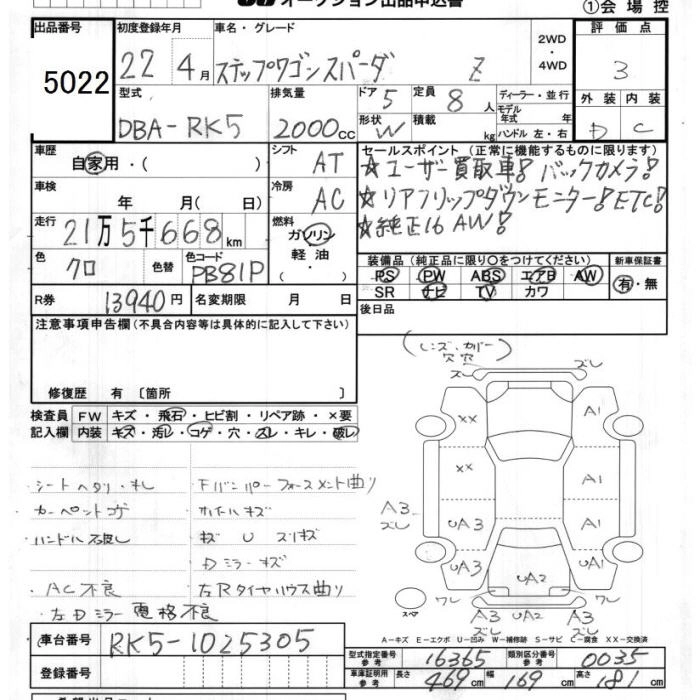 オークション出品申込書
①会場控
出品番号 初度登録年月 車名・グレード 2WD・4WD 評価点
5022 22 4月 ステップワゴンスパーダ Z 3
型式 排気量 ドア 5 定員 8人 ディーラー・並行 モデル年式 年 外装 内装
DBA-RK5 2000cc 形状 W 積載 kg ハンドル 左・右 D C
車歴 自家用・( ) シフト AT セールスポイント (正常に機能するものに限ります)
☆ユーザー買取車! バックカメラ!
車検 年 月( 日) 冷房 AC ☆リアフリップダウンモニター! ETC!
走行 21万5千668km 燃料 ガソリン・軽油・( ) ☆純正16AW!
色 クロ 色替 色コード PB81P 装備品 (純正品に限り○をつけてください) 新車保証書
PS PW ABS エアB AW 有・無
SR ナビ TV カワ
R券 13940円 名変期限 月 日 後日品
注意事項申告欄 (不具合内容等は具体的に記入して下さい)
修復歴 有 〔箇所 〕
検査員記入欄 FW キズ・飛石・ヒビ割・リペア跡・×要
内装 キズ・汚レ・コゲ・穴・スレ・キレ・破レ
(レンズ・カバー)
穴 穴
ズレ ズレ
XX A1
XX A1
A3 ズレ UA3 A1
UA3 UA2 UA1
ワレ ワレ
A3 ズレ UA2 A3 ズレ
スペア
シートヘタリ・キレ Fバンパーフォースメント曲り
カーペットコゲ ホイールキズ
ハンドル破レ キズ U スリキズ
Dミラーキズ
AC不良 左Rタイヤハウス曲り
左Dミラー電格不良
A-キズ E-エクボ U-凹み W-補修跡 S-サビ C-腐食 XX-交換済
車台番号 RK5-1025305
型式指定番号参考 16365 類別区分番号参考 0035
登録番号 車庫証明用参考 長さ 469cm 幅 169cm 高さ 181cm